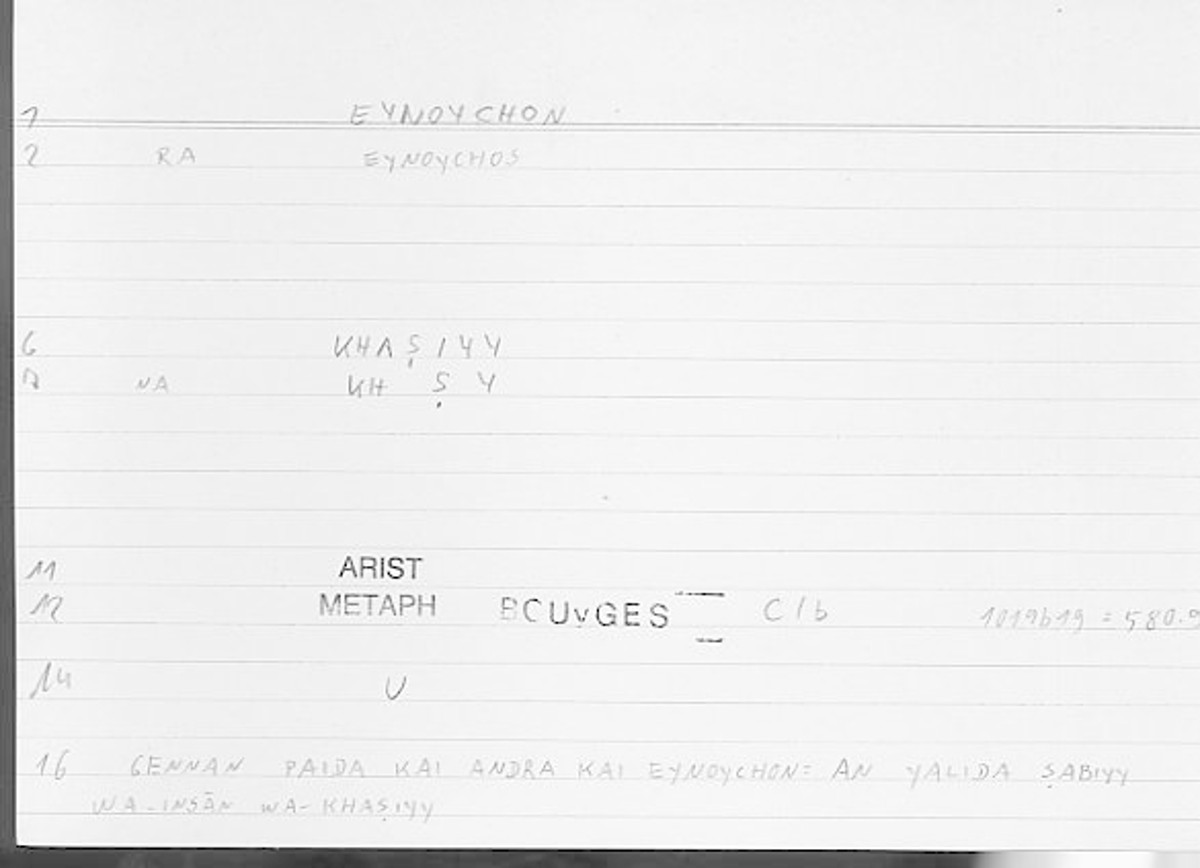 1 EYNOYCHON
2 RA EYNOYCHOS
6 KHAṢIYY
7 NA KH Ṣ Y
11 ARIST
12 METAPH BOUYGES C/b 1019b19 = 580.9
14 U
16 GENNAN PAIDA KAI ANDRA KAI EYNOYCHON = AN YALIDA ṢABIYY
WA-INSĀN WA-KHAṢIYY